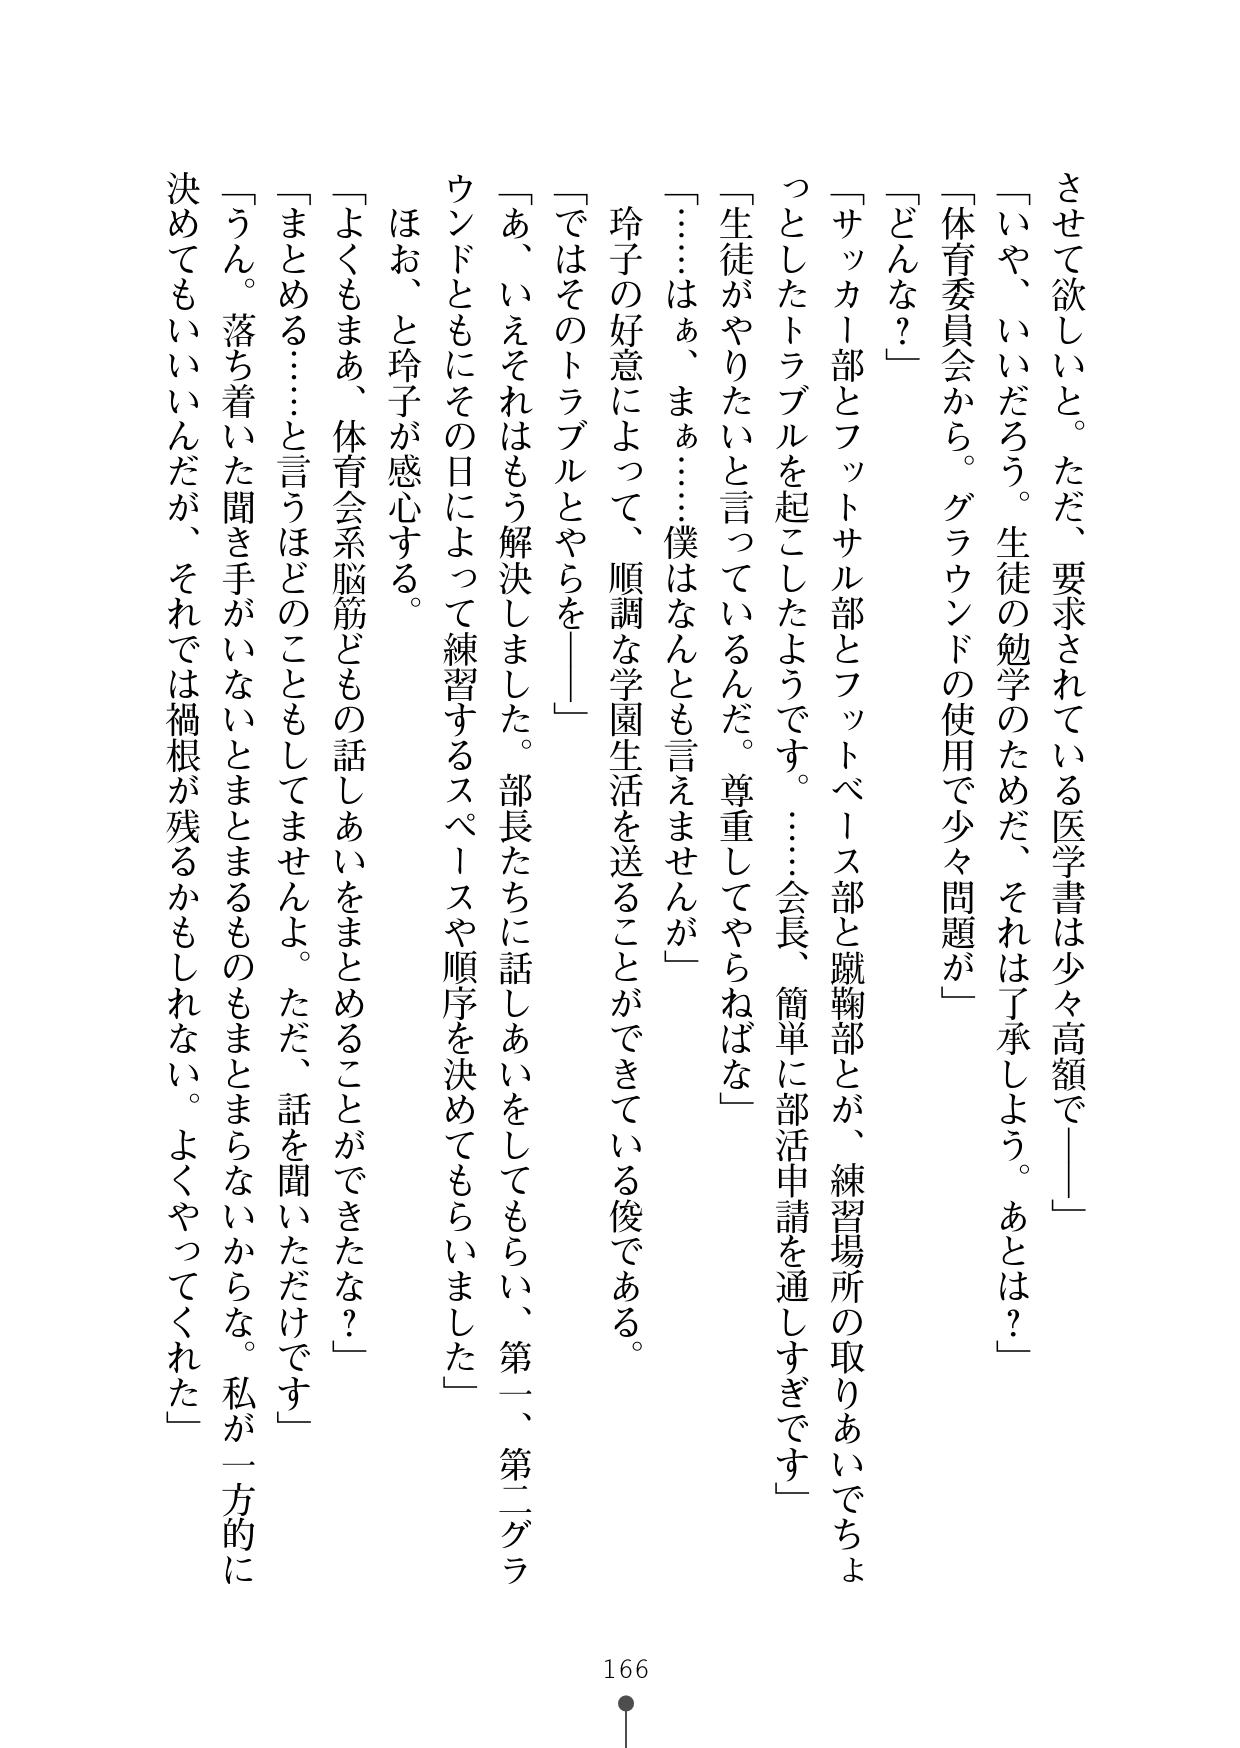 させて欲しいと。ただ、要求されている医学書は少々高額で――」
「いや、いいだろう。生徒の勉学のためだ、それは了承しよう。あとは？」
「体育委員会から。グラウンドの使用で少々問題が」
「どんな？」
「サッカー部とフットサル部とフットベース部と蹴鞠部とが、練習場所の取りあいでちょ
っとしたトラブルを起こしたようです。……会長、簡単に部活申請を通しすぎです」
「生徒がやりたいと言っているんだ。尊重してやらねばな」
「……はぁ、まぁ……僕はなんとも言えませんが」
　玲子の好意によって、順調な学園生活を送ることができている俊である。
「ではそのトラブルとやらを――」
「あ、いえそれはもう解決しました。部長たちに話しあいをしてもらい、第一、第二グラ
ウンドともにその日によって練習するスペースや順序を決めてもらいました」
　ほお、と玲子が感心する。
「よくもまあ、体育会系脳筋どもの話しあいをまとめることができたな？」
「まとめる……と言うほどのこともしてませんよ。ただ、話を聞いただけです」
「うん。落ち着いた聞き手がいないとまとまるものもまとまらないからな。私が一方的に
決めてもいいいんだが、それでは禍根が残るかもしれない。よくやってくれた」
166